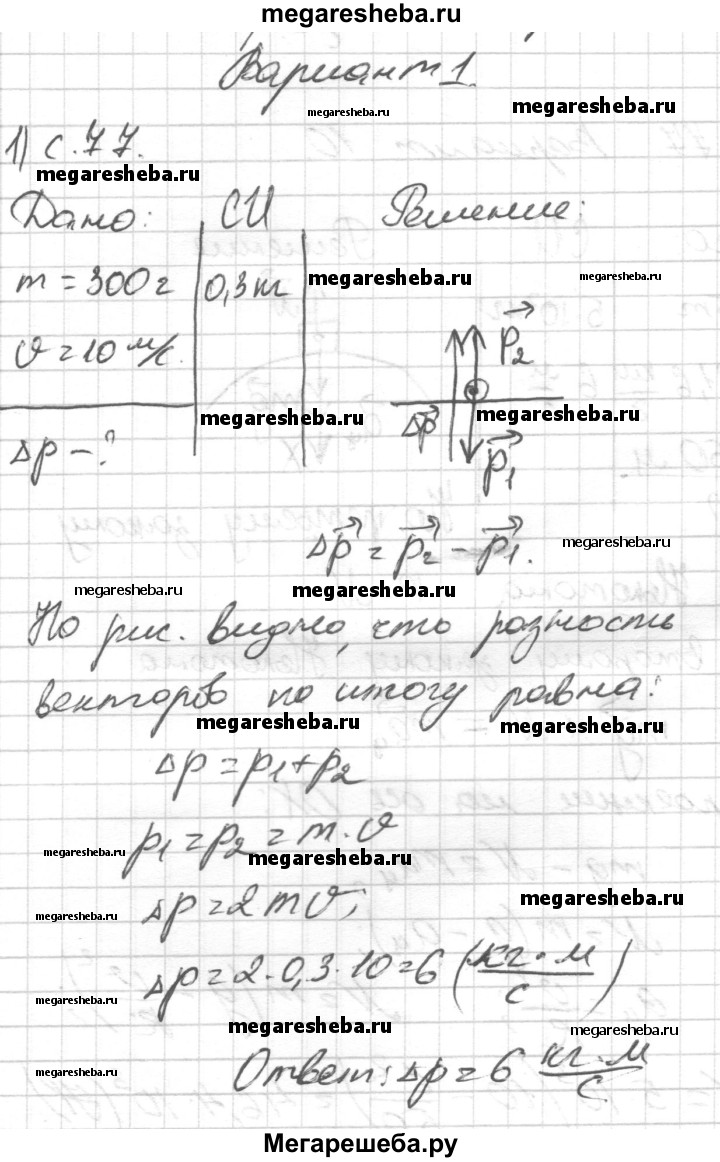 megaresheba.ru
Вариант 1.
megaresheba.ru megaresheba.ru
1) с. 77.
megaresheba.ru
Дано: СИ Решение:
m = 300 г 0,3 кг megaresheba.ru megaresheba.ru
υ = 10 м/с.
p₂
megaresheba.ru megaresheba.ru
Δp
Δp - ?
p₁
Δp = p₂ - p₁. megaresheba.ru
megaresheba.ru megaresheba.ru
По рис. видно, что разность
векторов по итогу равна:
megaresheba.ru megaresheba.ru
Δp = p₁ + p₂
p₁ = p₂ = m · υ
megaresheba.ru megaresheba.ru
megaresheba.ru
Δp = 2 m υ;
megaresheba.ru
Δp = 2 · 0,3 · 10 = 6 (кг · м / с)
megaresheba.ru
megaresheba.ru megaresheba.ru
Ответ: Δp = 6 кг · м / с
megaresheba.ru
Мегарешеба.ру